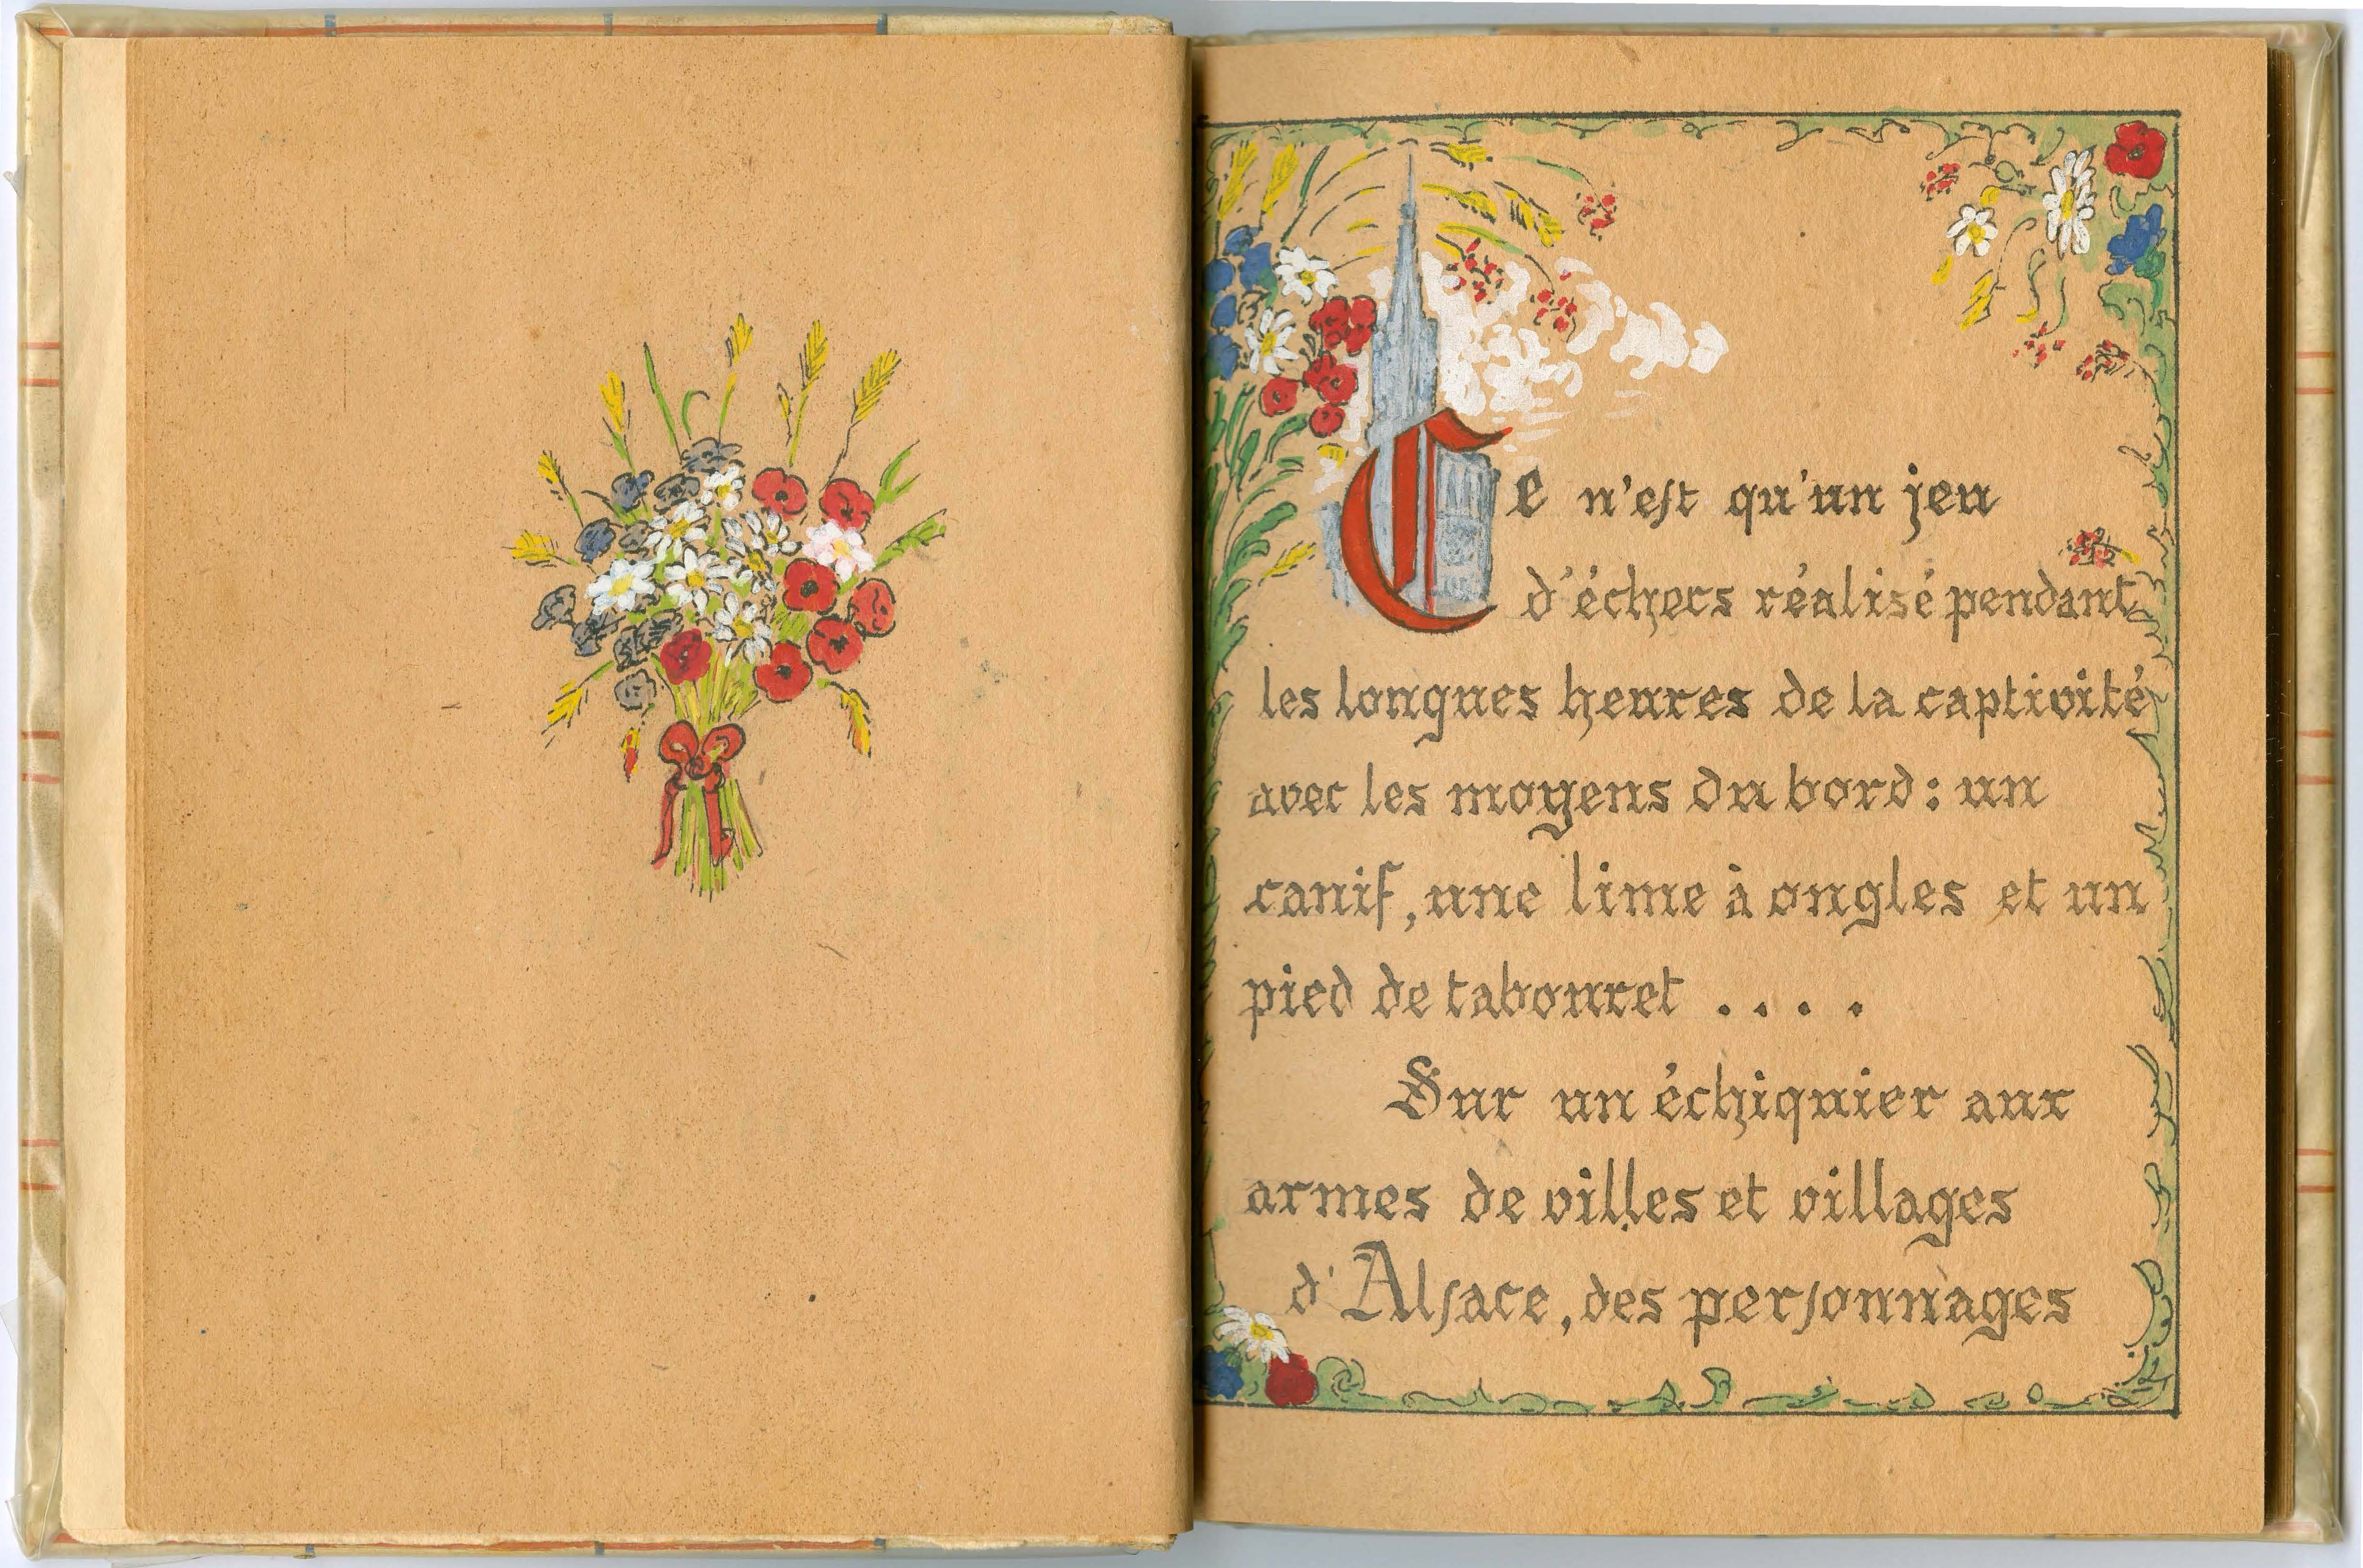 Ce n'est qu'un jeu
d'échecs réalisé pendant
les longues heures de la captivité
avec les moyens du bord : un
canif, une lime à ongles et un
pied de tabouret . . . .
Sur un échiquier aux
armes de villes et villages
d'Alsace, des personnages